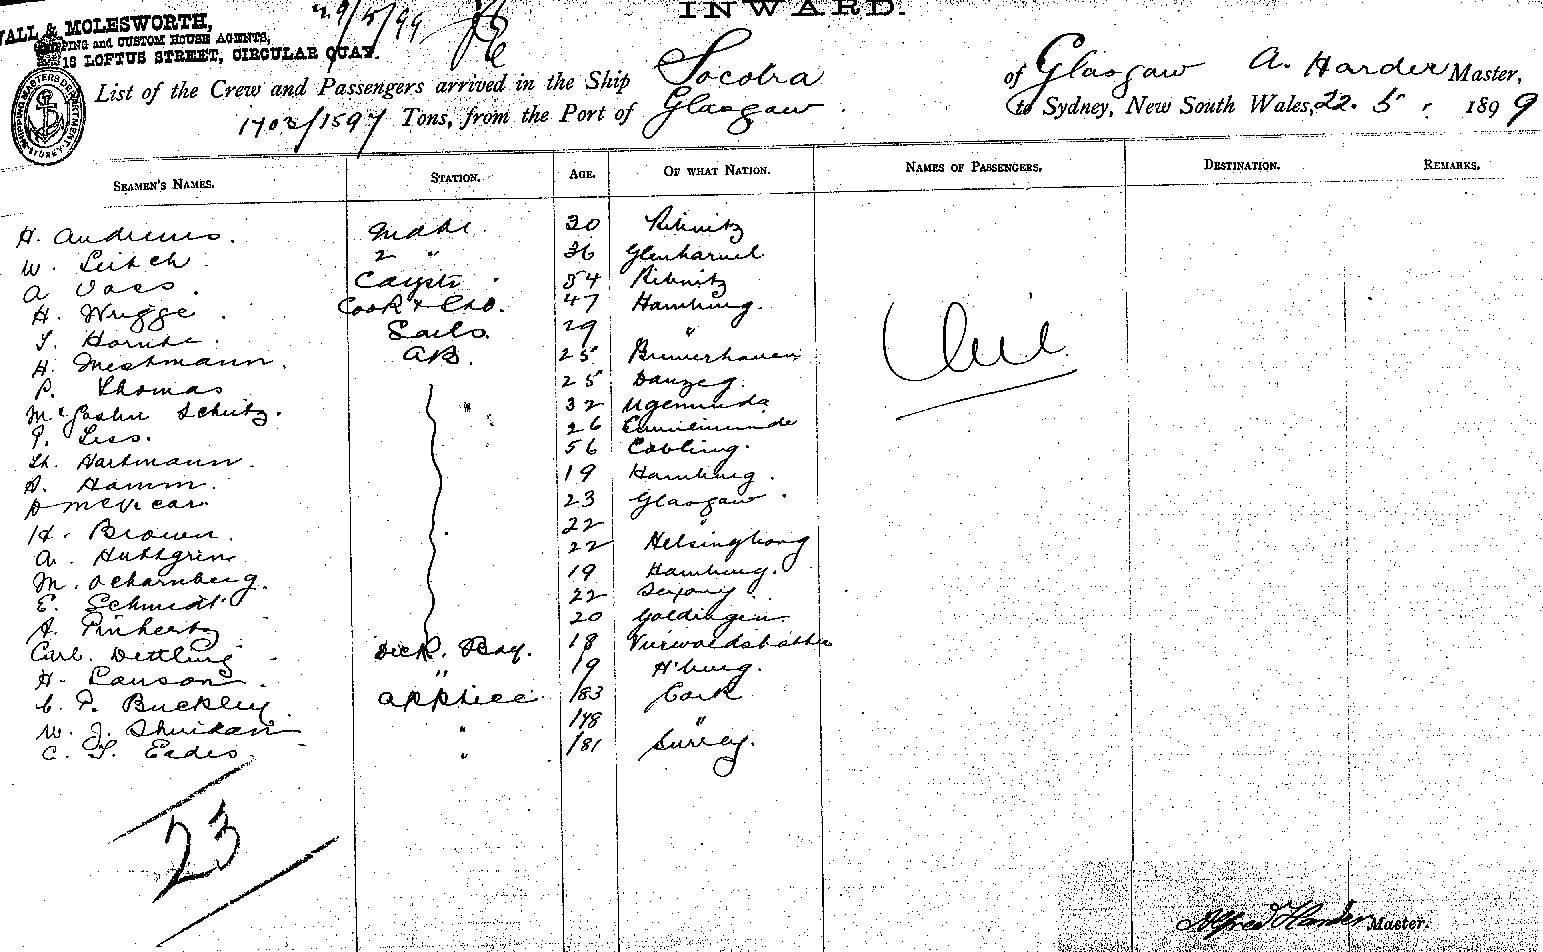 INWARD.
29/5/99
WALL & MOLESWORTH,
SHIPPING and CUSTOM HOUSE AGENTS,
18 LOFTUS STREET, CIRCULAR QUAY.
List of the Crew and Passengers arrived in the Ship Socotra of Glasgow A. Harder Master,
1702/1597 Tons, from the Port of Glasgow to Sydney, New South Wales, 22. 5. 1899
SEAMEN'S NAMES. STATION. AGE. OF WHAT NATION. NAMES OF PASSENGERS. DESTINATION. REMARKS.
H. Andrews. Mate. 30 Ribnitz
W. Leitch 2 " 36
A Voss. 54 Ribnitz
H. Wrigge Cook & 47 Hamburg.
Sails. 29 "
H. AB. 25 Bremerhaven
P. Thomas 25 Danzeg.
Schutz. 32
Liss. 26
Hartmann. 56
Hamm. 19 Hamburg.
D McVicar 23 Glasgow.
H. Brown. 22 "
A. Huttgrin 22 Helsingborg
M. Scharnberg. 19 Hamburg.
E. Schmidt 22 Saxony
A. 20 Goldingen
Carl. Dettling Deck. Boy. 18
H. " 19 H'burg.
C. P. Buckley Apptice 183 Cork
W. J. " 178 "
C. F. Eades " 181 Surrey.
23
Alfred Harder Master.